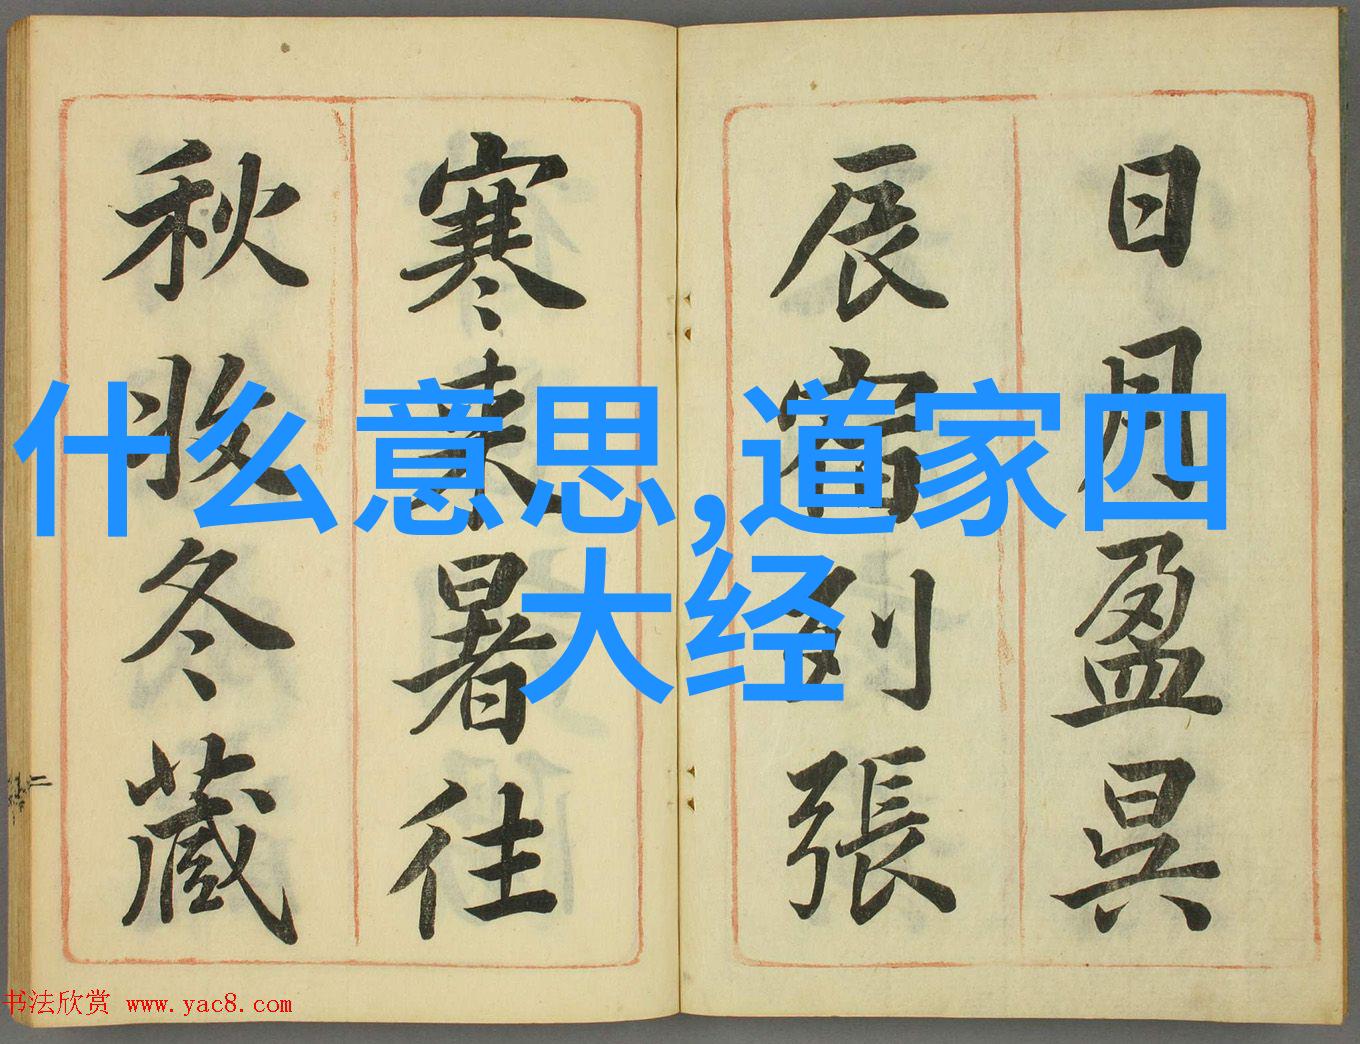 日月盈昃
辰宿列張
寒來暑往
秋收冬藏
什么意思,道家四
大经
书法欣赏 www.yac8.com